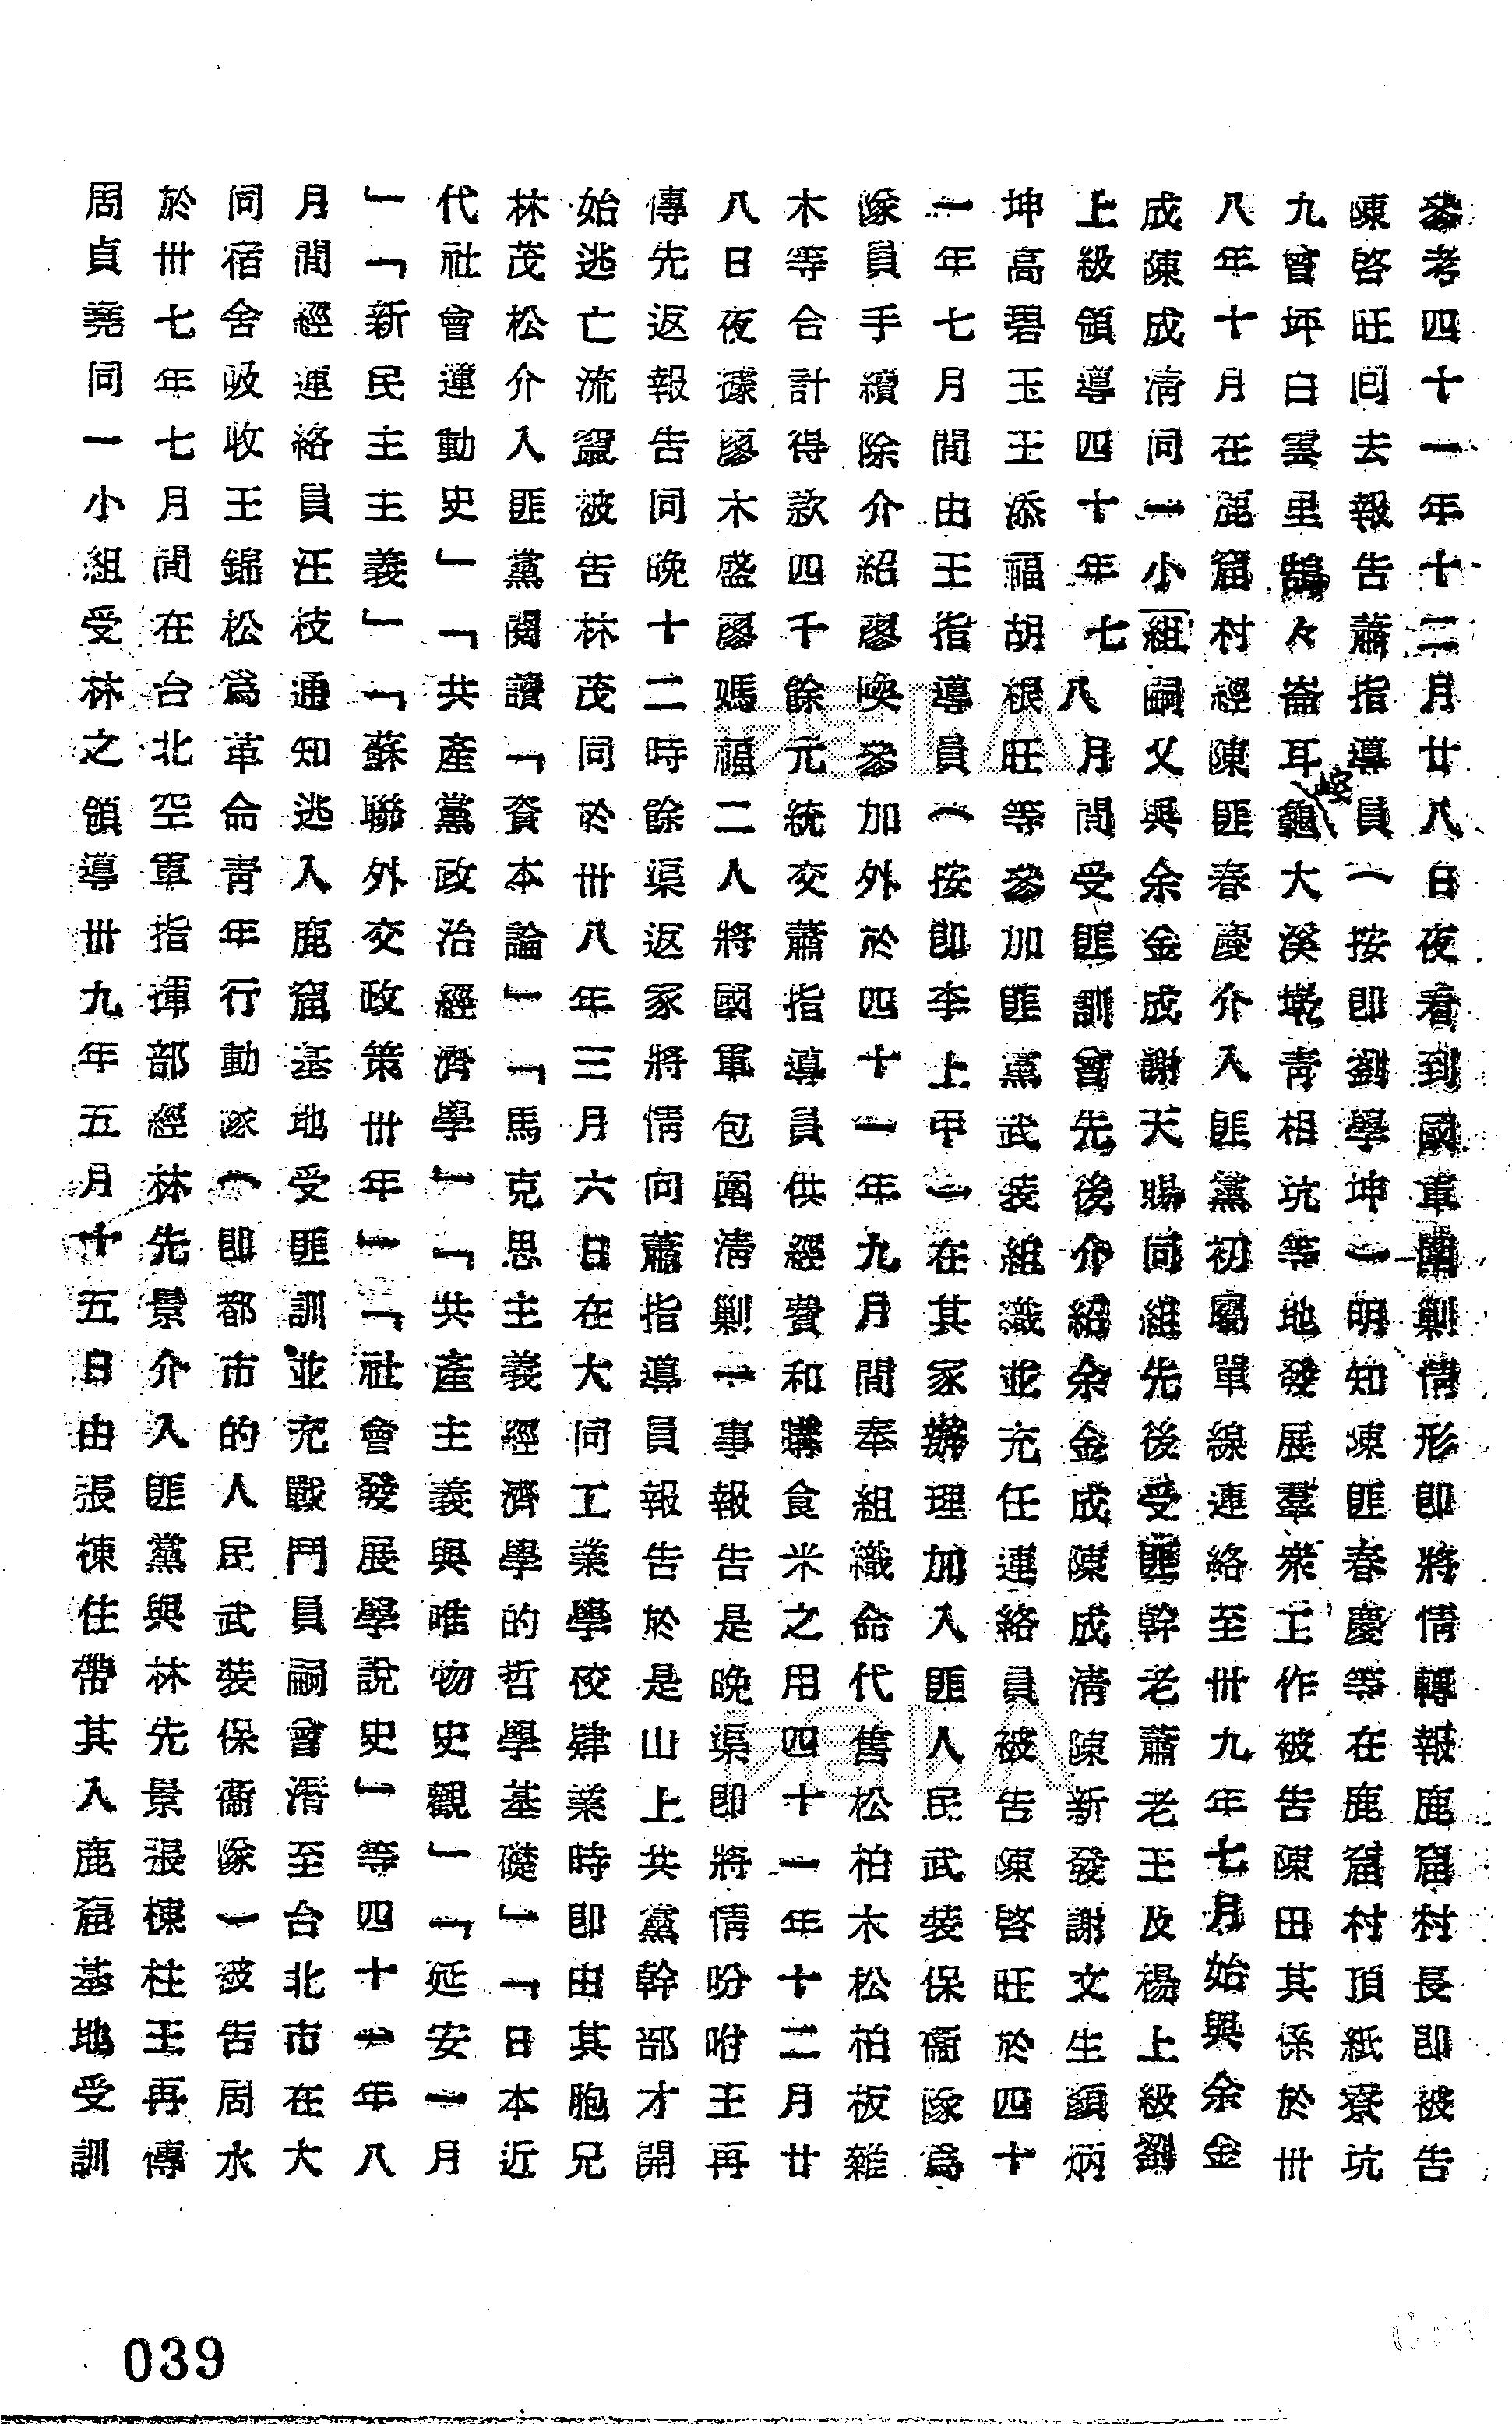 參考四十一年十二月廿八日夜看到國軍圍剿情形即將情轉報鹿窟村長即被告
陳啓旺囘去報告蕭指導員（按即劉學坤）明知陳匪春慶等在鹿窟村頂紙寮坑
九曾坪白雲里鵠々崙耳崆龜大溪墘青相坑等地發展羣衆工作被告陳田其係於卅
八年十月在鹿窟村經陳匪春慶介入匪黨初屬單線連絡至卅九年七月始與余金
成陳成淸同一小組嗣又與余金成謝天賜同組先後受匪幹老蕭老王及楊上級劉
上級領導四十年七八月間受匪訓曾先後介紹余金成陳成淸陳新發謝文生顏炳
坤高碧玉王添福胡根旺等參加匪黨武裝組織並充任連絡員被告陳啓旺於四十
一年七月間由王指導員（按即李上甲）在其家辦理加入匪人民武裝保衞隊爲
隊員手續除介紹廖喚參加外於四十一年九月間奉組織命代售松柏木松柏板雜
木等合計得款四千餘元統交蕭指導員供經費和購食米之用四十一年十二月廿
八日夜據廖木盛廖媽福二人將國軍包圍淸剿一事報告是晚渠即將情吩咐王再
傳先返報告同晚十二時餘渠返家將情向蕭指導員報告於是山上共黨幹部才開
始逃亡流竄被告林茂同於卅八年三月六日在大同工業學校肄業時即由其胞兄
林茂松介入匪黨閱讀「資本論」「馬克思主義經濟學的哲學基礎」「日本近
代社會運動史」「共產黨政治經濟學」「共產主義與唯物史觀」「延安一月
」「新民主主義」「蘇聯外交政策卅年」「社會發展學說史」等四十一年八
月間經連絡員汪枝通知逃入鹿窟基地受匪訓並充戰鬥員嗣會潛至台北市在大
同宿舍吸收王錦松爲革命靑年行動隊（即都市的人民武裝保衞隊）被告周水
於卅七年七月間在台北空軍指揮部經林先景介入匪黨與林先景張棟柱王再傳
周貞堯同一小組受林之領導卅九年五月十五日由張棟住帶其入鹿窟基地受訓
039